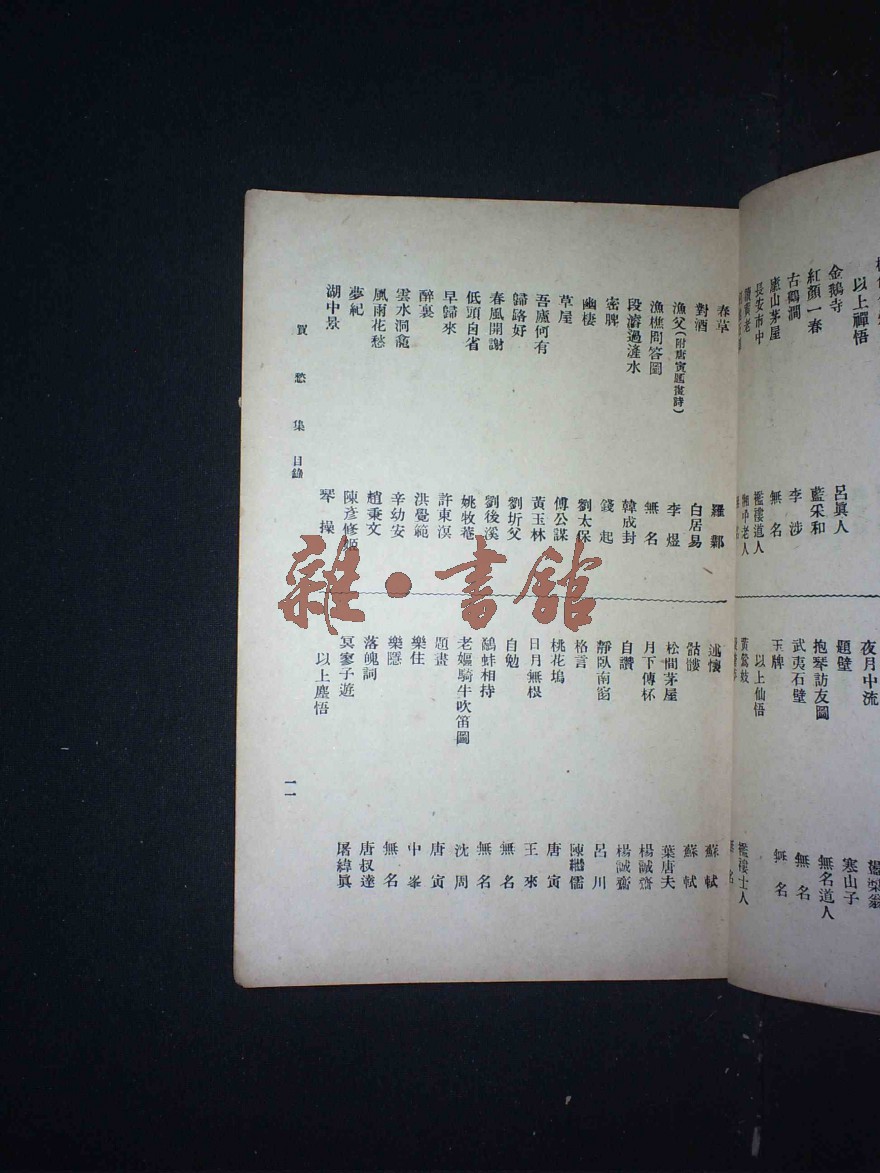 以上禪悟
金鵝寺 呂眞人
紅顏一春 藍采和
古鶴澗 李涉
廬山茅屋 無名
長安市中 襤褸道人
夜月中流
題壁 寒山子
抱琴訪友圖 無名道人
武夷石壁 無名
玉牌 無名
以上仙悟
黃鶯妓 襤褸士人
春草 羅鄴
對酒 白居易
漁父(附唐寅題畫詩) 李煜
漁樵問答圖 無名
段濬過滻水 韓成封
密脾 錢起
幽棲 劉太保
草屋 傅公謀
吾廬何有 黃玉林
歸路好 劉圻父
春風開謝 劉後溪
低頭自省 姚牧菴
早歸來 許東溟
醉裏 洪覺範
雲水洞龕 辛幼安
風雨花愁 趙秉文
夢紀 陳彥修姬
湖中景 琴操
述懷 蘇軾
骷髏 蘇軾
松間茅屋 葉唐夫
月下傳杯 楊誠齋
自讚 楊誠齋
靜臥南窗 呂川
格言 陳繼儒
桃花塢 唐寅
日月無根 王來
自勉 無名
鷸蚌相持 無名
老嫗騎牛吹笛圖 沈周
題畫 唐寅
樂住 中峯
樂隱 無名
落魄詞 唐叔達
冥寥子遊 屠緯眞
以上塵悟
買愁集 目錄
一一
雜·書館